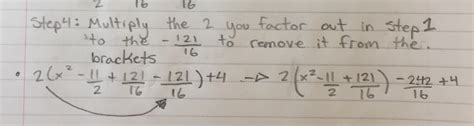 2 16 16
Step 4: Multiply the 2 you factor out in Step 1
to the -121/16 to remove it from the.
brackets
• 2(x² - 11/2 + 121/16 - 121/16) + 4 -> 2(x² - 11/2 + 121/16) - 242/16 + 4